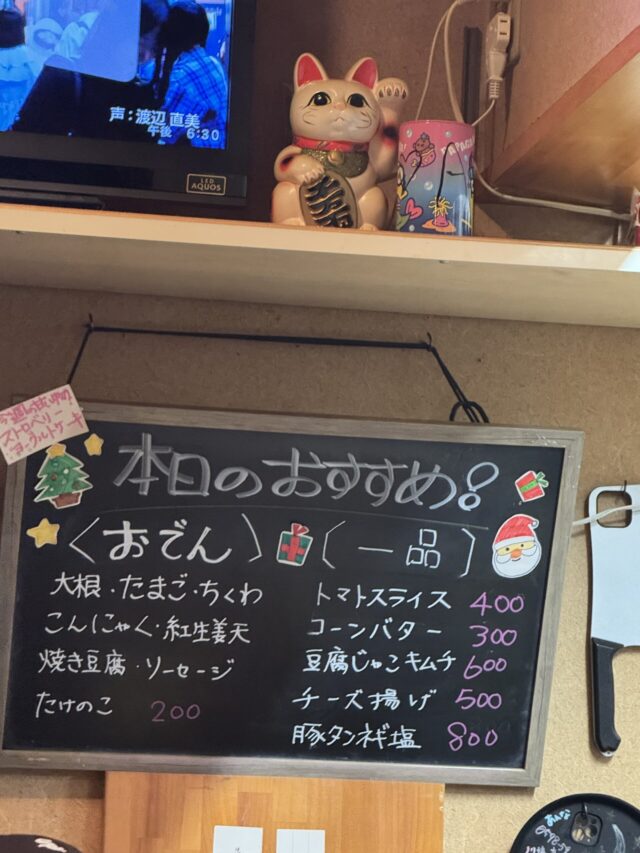 声：渡辺 直美
午後 6:30
LED
AQUOS
今週のおすすめ
ストロベリー
ヨーグルトケーキ
本日のおすすめ!
〈おでん〉
大根・たまご・ちくわ
こんにゃく・紅生姜天
焼き豆腐・ソーセージ
たけのこ 200
（一品）
トマトスライス 400
コーンバター 300
豆腐じゃこキムチ 600
チーズ揚げ 500
豚タンネギ塩 800